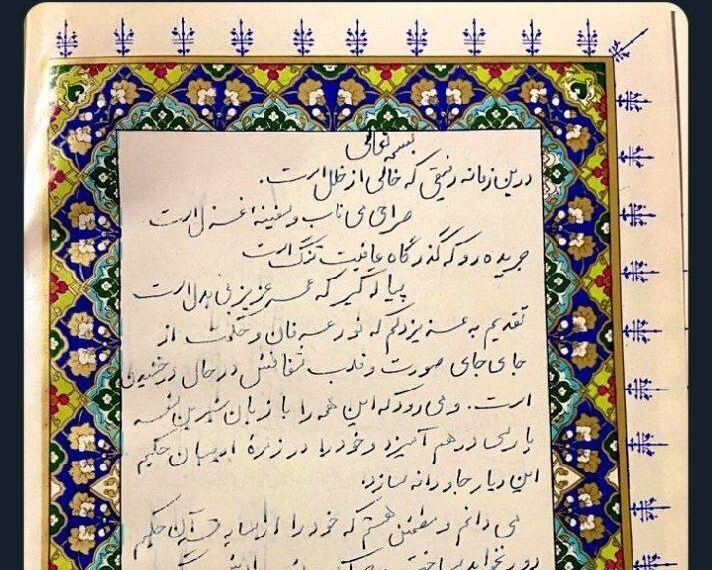 بسمه تعالی
درین زمانه رفیقی که خالی از خلل است.
صراحی می ناب و سفینه غزل است
جریده رو که گذرگاه عافیت تنگ است
پیاله گیر که عمر عزیز بی بدل است
تقدیم به عزیزدلم که نور عرفان و حکمت از
جای جای صورت و قلب شفافش در حال درخشیدن
است. و می رود که این همه را با زبان شیرین
پارسی در هم آمیزد و خود را در زمرهٔ ادیبان حکیم
این دیار جاودانه سازد.
می دانم و مطمئن هستم که خود را از سایه قرآن حکیم
دور نخواهد ساخت